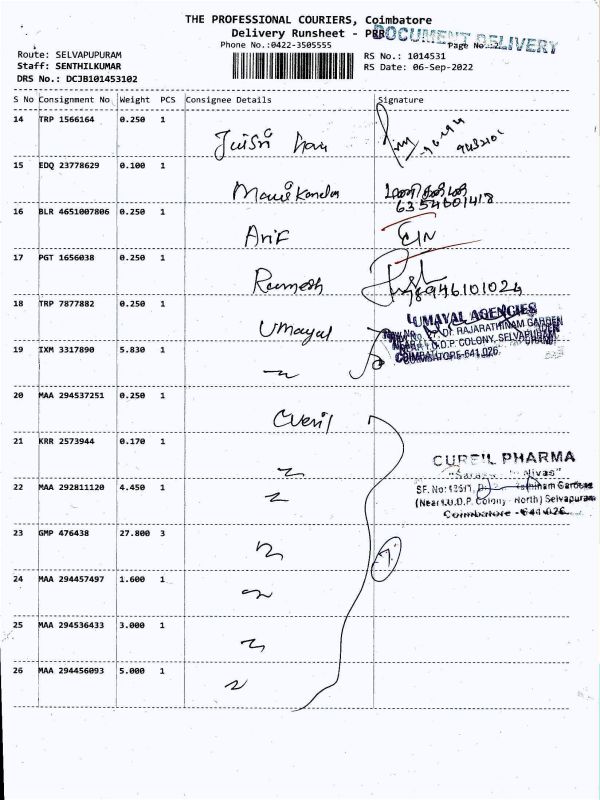 THE PROFESSIONAL COURIERS, Coimbatore
Delivery Runsheet - PRR
DOCUMENT DELIVERY
Phone No.:0422-3505555
Page No.:2
Route: SELVAPUPURAM
RS No.: 1014531
Staff: SENTHILKUMAR
RS Date: 06-Sep-2022
DRS No.: DCJB101453102
S No Consignment No Weight PCS Consignee Details Signature
14 TRP 1566164 0.250 1
15 EDQ 23778629 0.100 1
Manikandan
மணிகண்டன்
6354601418
16 BLR 4651007806 0.250 1
Arif
17 PGT 1656038 0.250 1
Ramesh
78946101024
18 TRP 7877882 0.250 1
Umayal
UMAYAL AGENCIES
RAJARATHINAM GARDEN
NEAR T.U.D.P. COLONY, SELVAPURAM
COIMBATORE-641 026.
19 IXM 3317890 5.830 1
20 MAA 294537251 0.250 1
21 KRR 2573944 0.170 1
CUREIL PHARMA
22 MAA 292811120 4.450 1
(Near T.U.D.P. Colony - North) Selvapuram
Coimbatore - 641 026.
23 GMP 476438 27.800 3
24 MAA 294457497 1.600 1
25 MAA 294536433 3.000 1
26 MAA 294456093 5.000 1